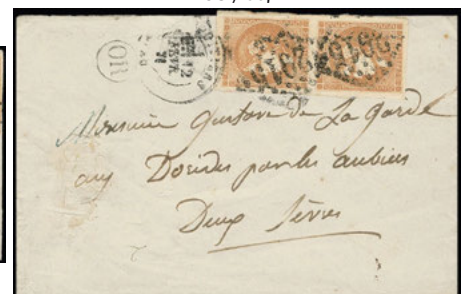 OR
12
71
2915
2915
Monsieur Gustave de La Garde
aux Dorides par les aubiers
Deux Sèvres